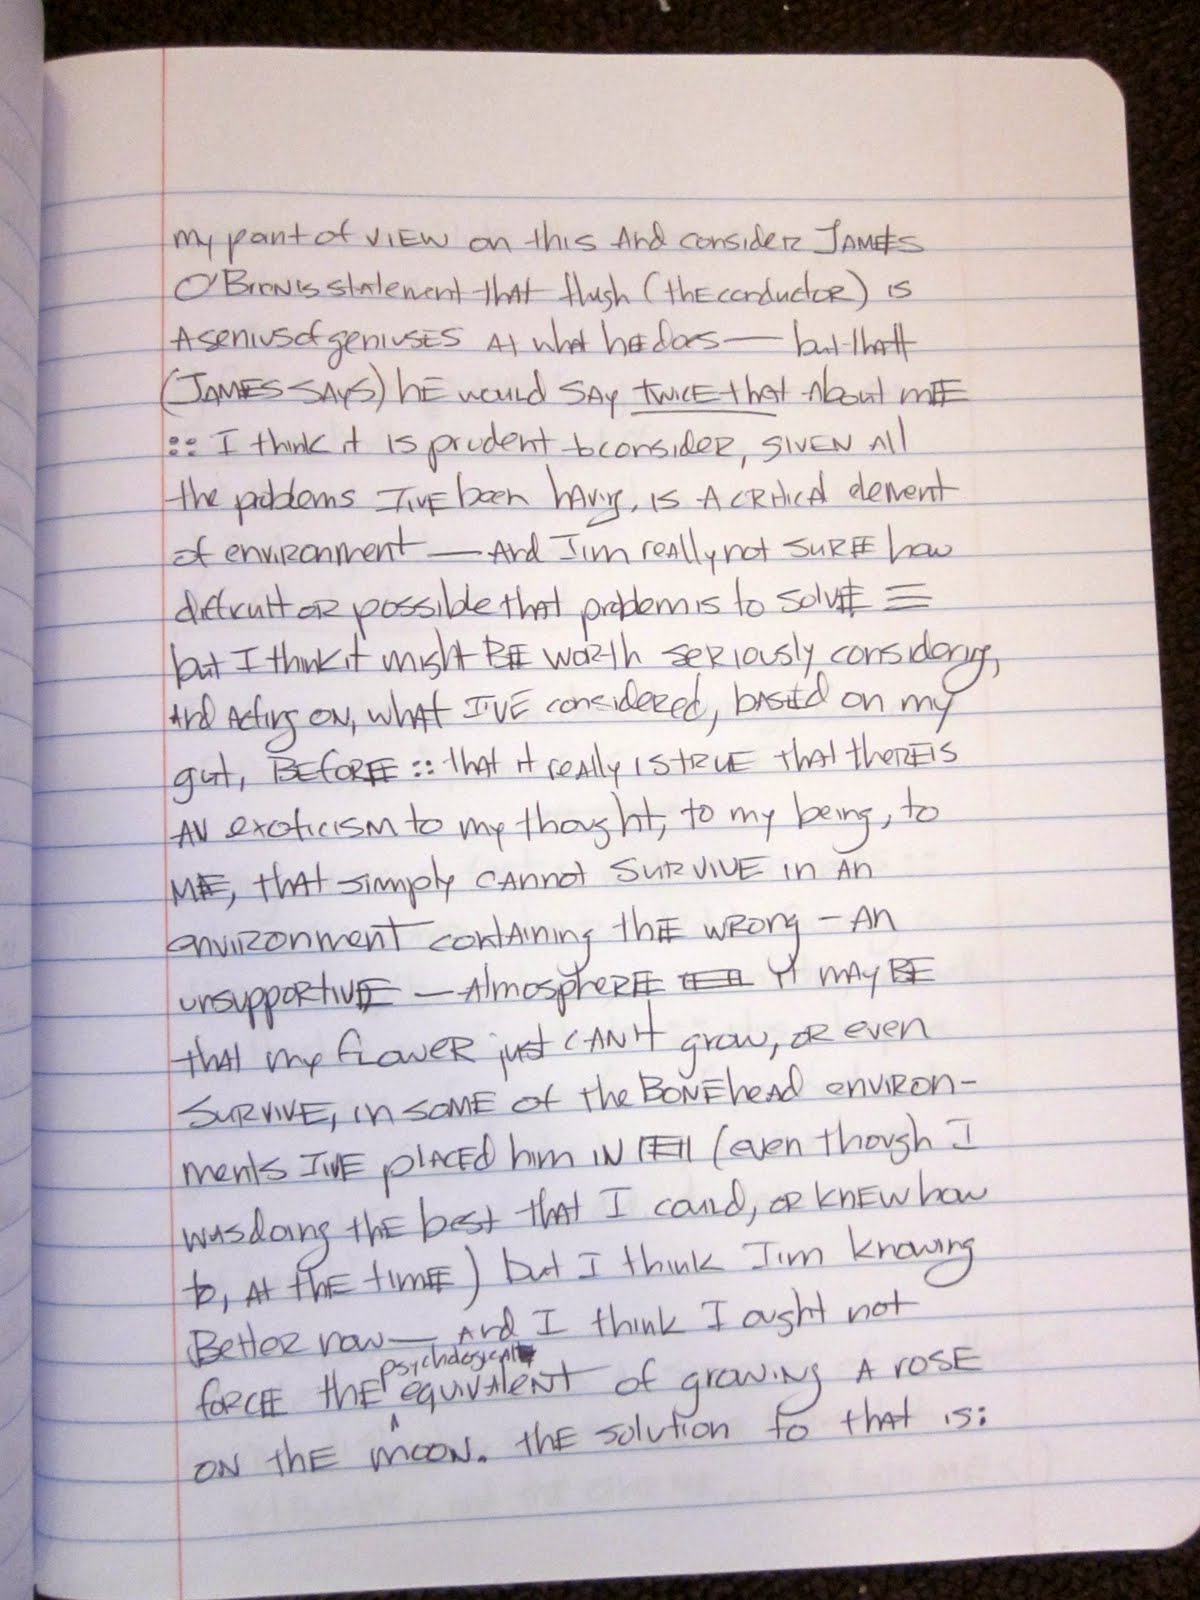 my point of view on this and consider James
O'Brion's statement that flush (the conductor) is
a genius of geniuses at what he does — but that
(James says) he would say twice that about me
:: I think it is prudent to consider, given all
the problems I've been having, is a critical element
of environment — And I'm really not sure how
difficult or possible that problem is to solve —
but I think it might be worth seriously considering,
and acting on, what I've considered, based on my
gut, before :: that it really is true that there is
an exoticism to my thought, to my being, to
me, that simply cannot survive in an
environment containing the wrong – an
unsupportive — atmosphere it may be
that my flower just can't grow, or even
survive, in some of the bonehead environ-
ments I've placed him in (even though I
was doing the best that I could, or knew how
to, at the time) but I think I'm knowing
better now — and I think I ought not
force the psychological equivalent of growing a rose
on the moon. The solution to that is: